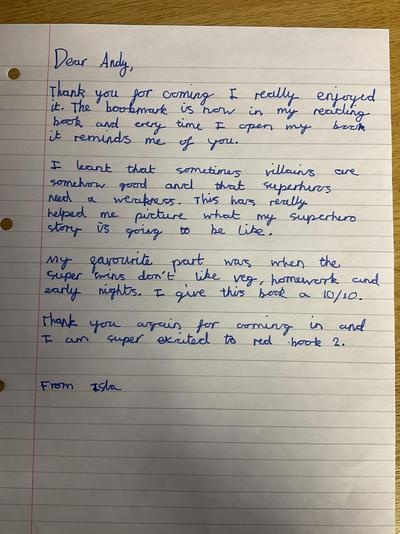 Dear Andy,
Thank you for coming I really enjoyed
it. The bookmark is now in my reading
book and every time I open my book
it reminds me of you.
I leant that sometimes villains are
somehow good and that superheros
need a weakness. This has really
helped me picture what my superhero
story is going to be like.
My favourite part was when the
super twins don't like veg, homework and
early nights. I give this book a 10/10.
Thank you again for coming in and
I am super excited to red book 2.
From Isla